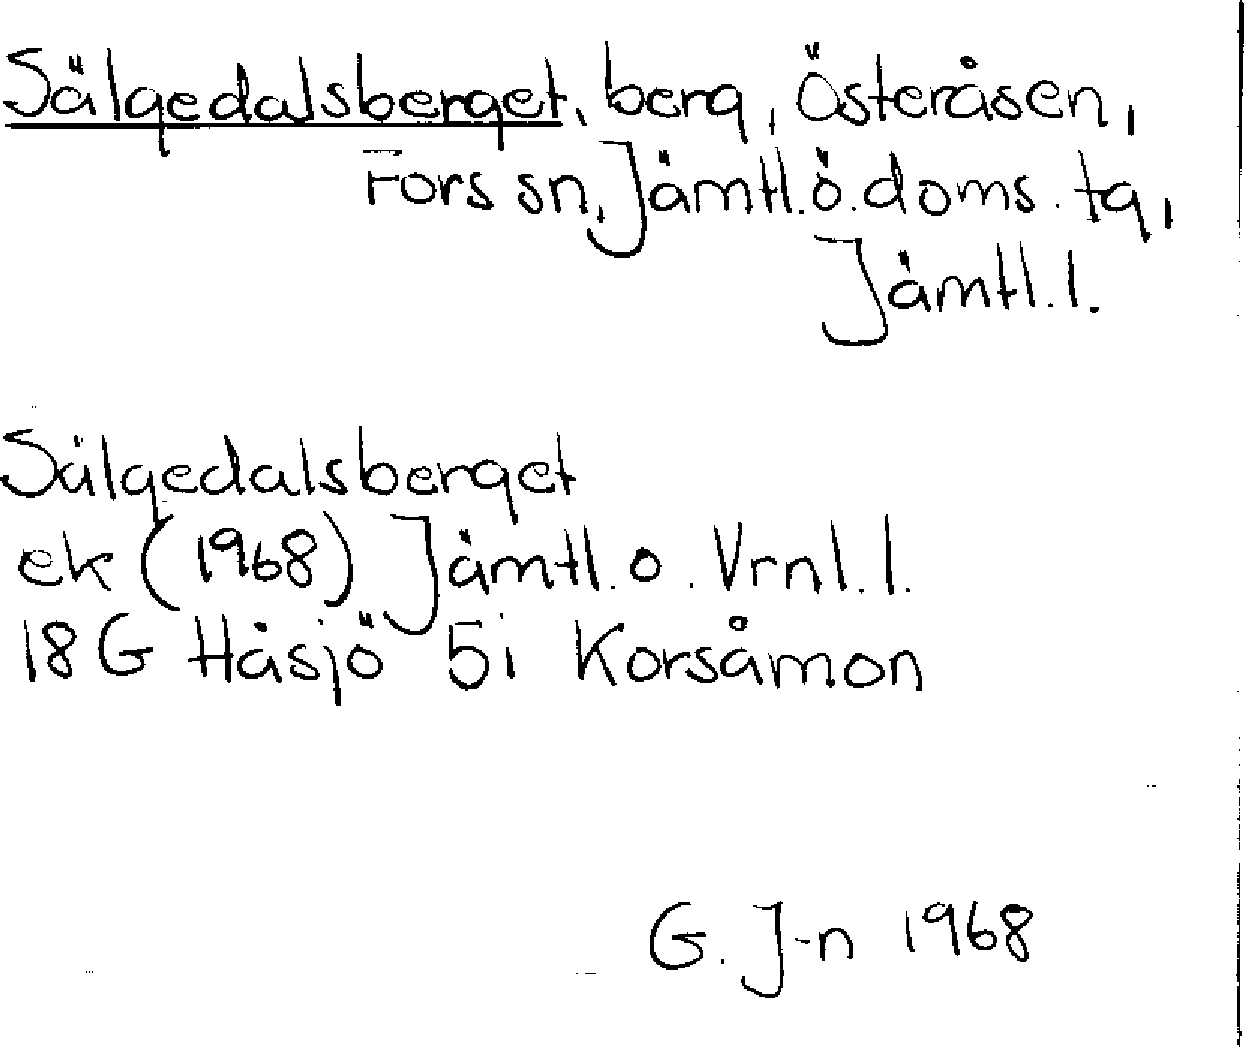 Sälgedalsberget, berg, Österåsen,
Fors sn, Jämtl. ö. doms. tg,
Jämtl. l.
Sälgedalsberget
ek (1968) Jämtl. o. Vrnl. l.
18 G Håsjö 5i Korsåmon
G. J-n 1968